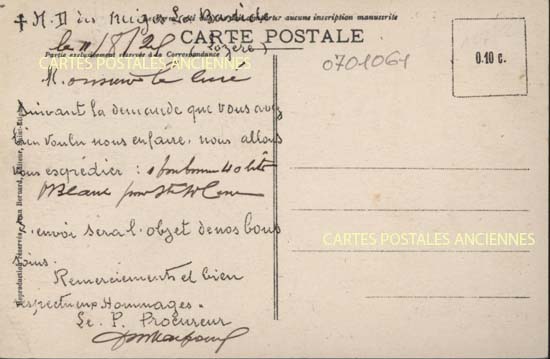 ✝ N. D des Neiges La Bastide
aucune inscription manuscrite
le 11/8/25 (Lozère)
CARTE POSTALE
Partie exclusivement réservée à la Correspondance
CARTES POSTALES ANCIENNES
0701061
0.10 c.
Monsieur le curé
Suivant la demande que vous avez
bien voulu nous en faire, nous allons
vous expédier : 1 bonbonne 40 lit
Blanc pour
l'envoi sera l'objet de nos bons
soins.
CARTES POSTALES ANCIENNES
Remerciements et bien
respectueux Hommages.
Le P. Procureur
Reproduction réservée, Jean Bernard, Editeur,